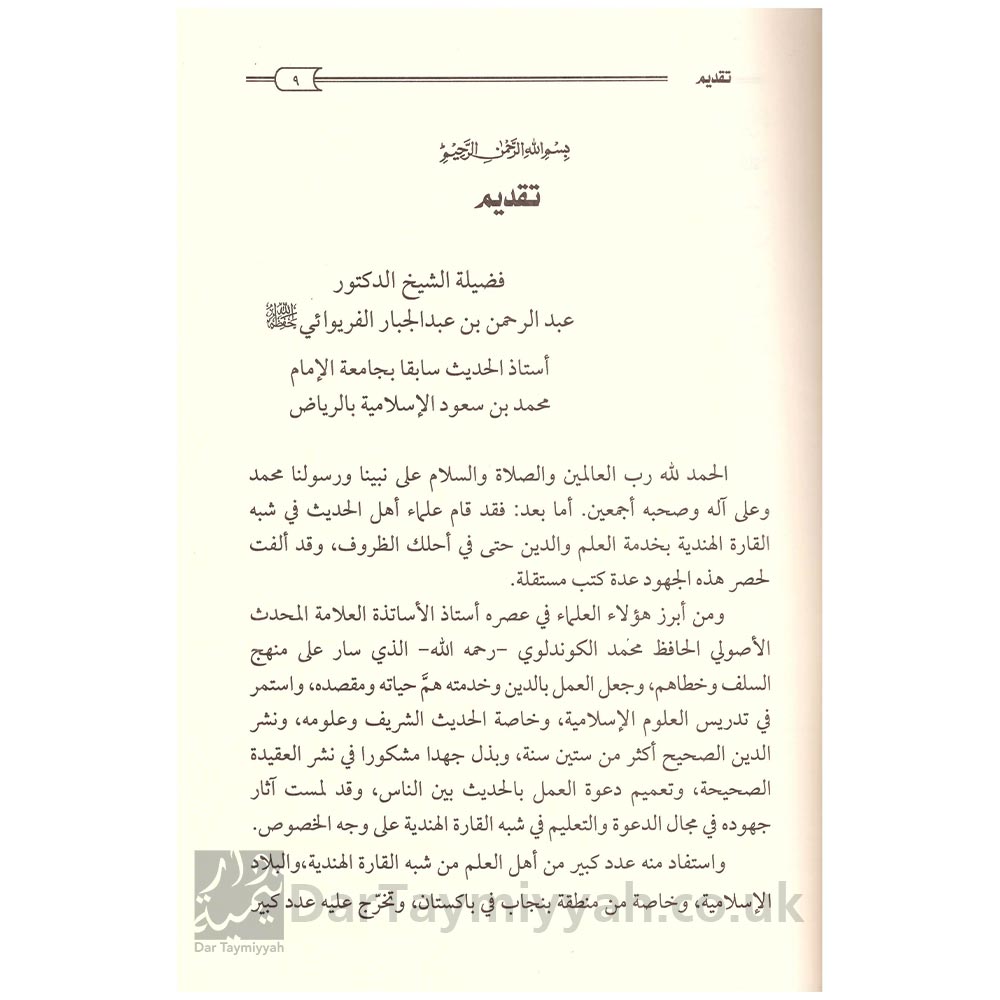 تقديم
٩
بِسْمِ اللهِ الرَّحْمٰنِ الرَّحِيْمِ
تقديم
فضيلة الشيخ الدكتور
عبد الرحمن بن عبدالجبار الفريوائي حفظه الله
أستاذ الحديث سابقا بجامعة الإمام
محمد بن سعود الإسلامية بالرياض
الحمد لله رب العالمين والصلاة والسلام على نبينا ورسولنا محمد
وعلى آله وصحبه أجمعين. أما بعد: فقد قام علماء أهل الحديث في شبه
القارة الهندية بخدمة العلم والدين حتى في أحلك الظروف، وقد ألفت
لحصر هذه الجهود عدة كتب مستقلة.
ومن أبرز هؤلاء العلماء في عصره أستاذ الأساتذة العلامة المحدث
الأصولي الحافظ محمد الكوندلوي -رحمه الله- الذي سار على منهج
السلف وخطاهم، وجعل العمل بالدين وخدمته همَّ حياته ومقصده، واستمر
في تدريس العلوم الإسلامية، وخاصة الحديث الشريف وعلومه، ونشر
الدين الصحيح أكثر من ستين سنة، وبذل جهدا مشكورا في نشر العقيدة
الصحيحة، وتعميم دعوة العمل بالحديث بين الناس، وقد لمست آثار
جهوده في مجال الدعوة والتعليم في شبه القارة الهندية على وجه الخصوص.
واستفاد منه عدد كبير من أهل العلم من شبه القارة الهندية،والبلاد
الإسلامية، وخاصة من منطقة بنجاب في باكستان، وتخرّج عليه عدد كبير
دار تيمية
Dar Taymiyyah
DarTaymiyyah.co.uk